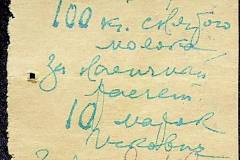 100 кг. снятого
молока
За наличный
расчет.
10 марок